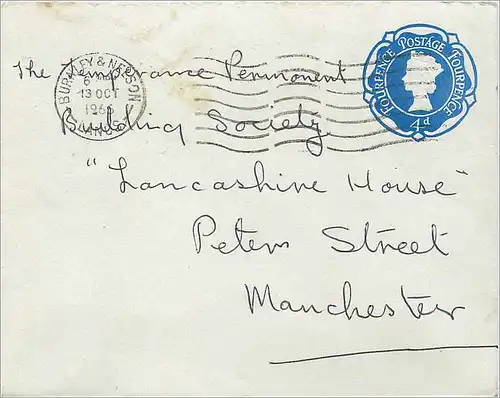 FOURPENCE POSTAGE FOURPENCE
4d
BURNLEY & NELSON
13 OCT
1966
LANCS
The Temperance Permanent
Building Society
"Lancashire House"
Peters Street
Manchester